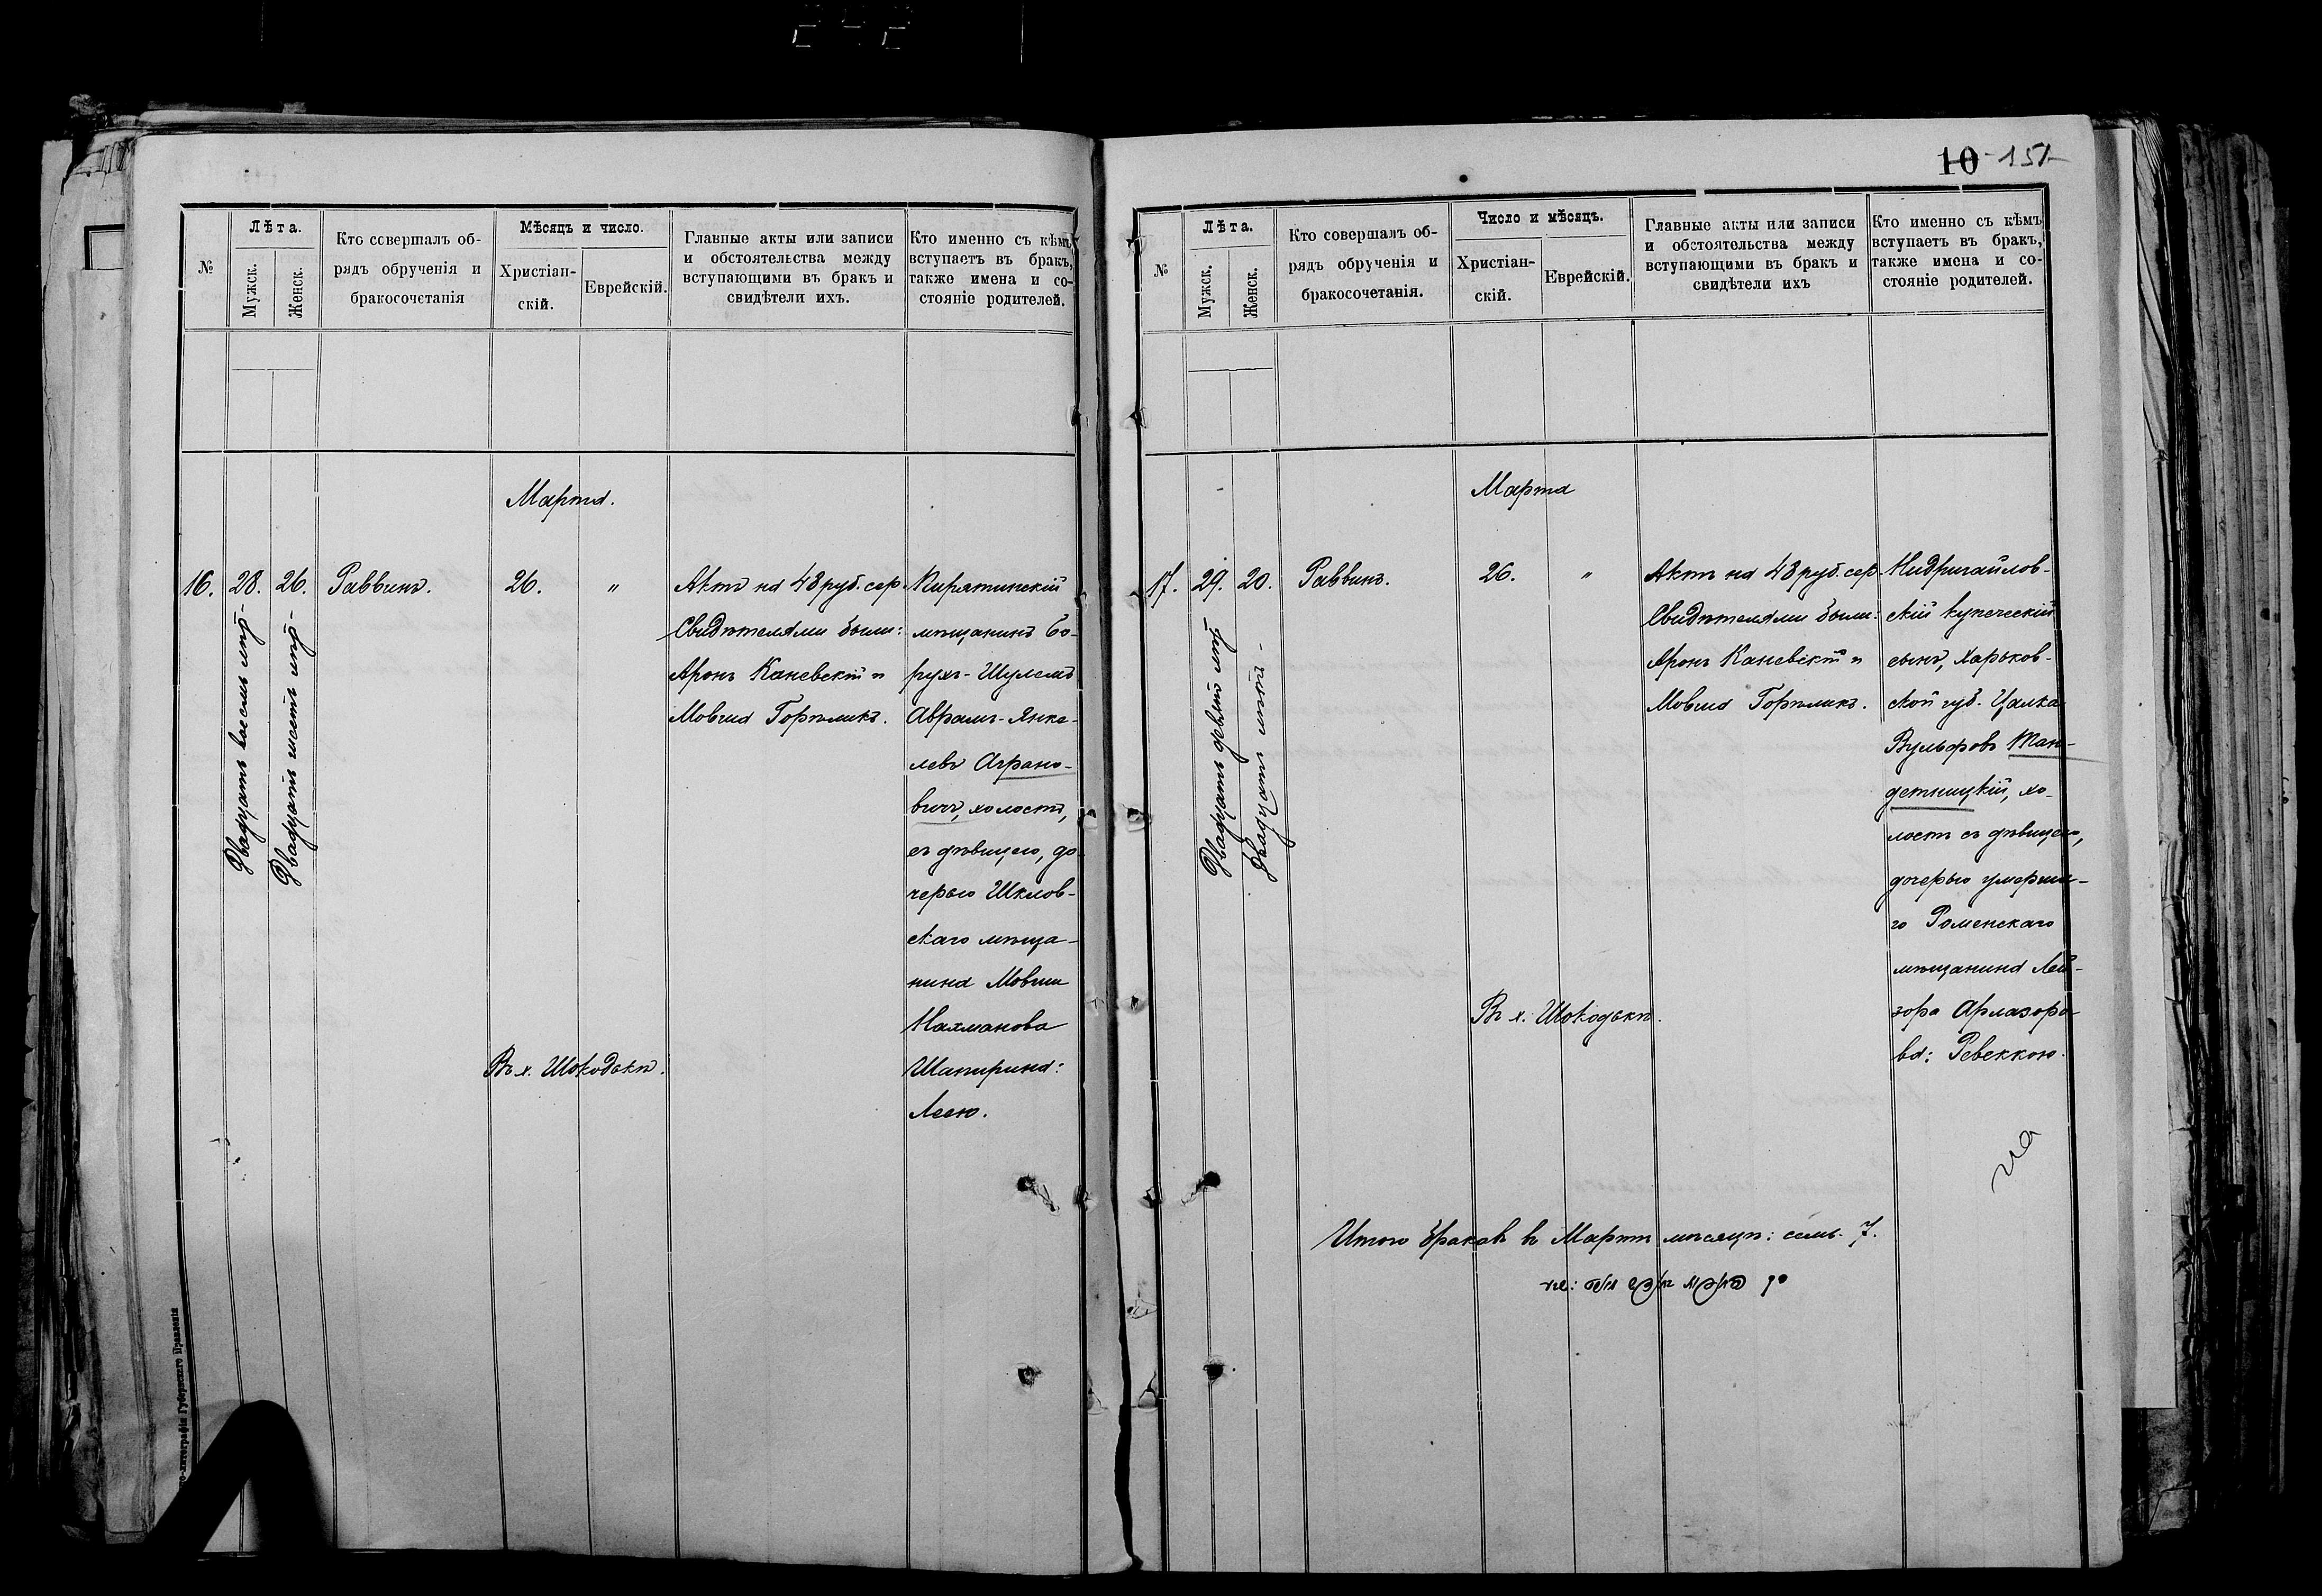 242
№
Лѣта.
Мужск.
Женск.
Кто совершалъ об-
рядъ обрученія и
бракосочетанія
Мѣсяцъ и число.
Христіан-
скій.
Еврейскій.
Главные акты или записи
и обстоятельства между
вступающими въ бракъ и
свидѣтели ихъ.
Кто именно съ кѣмъ
вступаетъ въ бракъ,
также имена и со-
стояніе родителей.
Марта.
16.
28.
Двадцать восемь лѣтъ
26.
Двадцать шесть лѣтъ
Раввинъ.
26.
"
Актъ на 48 руб. сер.
Свидѣтелями были:
Аронъ Каневскій и
Мовша Горѣликъ.
Пирятинскій
мѣщанинъ Бо-
рухъ-Шулемъ
Аврамъ-Янке-
левъ Аграно-
вичъ, холостъ,
съ дѣвицею, до-
черью Шклов-
скаго мѣща-
нина Мовши
Нахманова
Шапирина:
Лсею.
Въ х.
Типо-литографія Губернскаго Правленія
10 151
№
Лѣта.
Мужск.
Женск.
Кто совершалъ об-
рядъ обрученія и
бракосочетанія.
Число и мѣсяцъ.
Христіан-
скій.
Еврейскій.
Главные акты или записи
и обстоятельства между
вступающими въ бракъ и
свидѣтели ихъ
Кто именно съ кѣмъ
вступаетъ въ бракъ,
также имена и со-
стояніе родителей.
Марта
17.
29.
Двадцать девять лѣтъ
20.
Двадцать лѣтъ
Раввинъ.
26.
"
Актъ на 48 руб. сер.
Свидѣтелями были:
Аронъ Каневскій и
Мовша Горѣликъ.
Недригайлов-
скій купеческій
сынъ, Харьков-
ской губ. Цалка
Вульфовъ Ман-
детницкій, хо-
лостъ съ дѣвицею,
дочерью умерша-
го Роменскаго
мѣщанина Лей-
зора Арлазоро-
ва: Ревеккою.
Въ х.
Итого браковъ въ Мартѣ мѣсяцѣ: семь. 7.